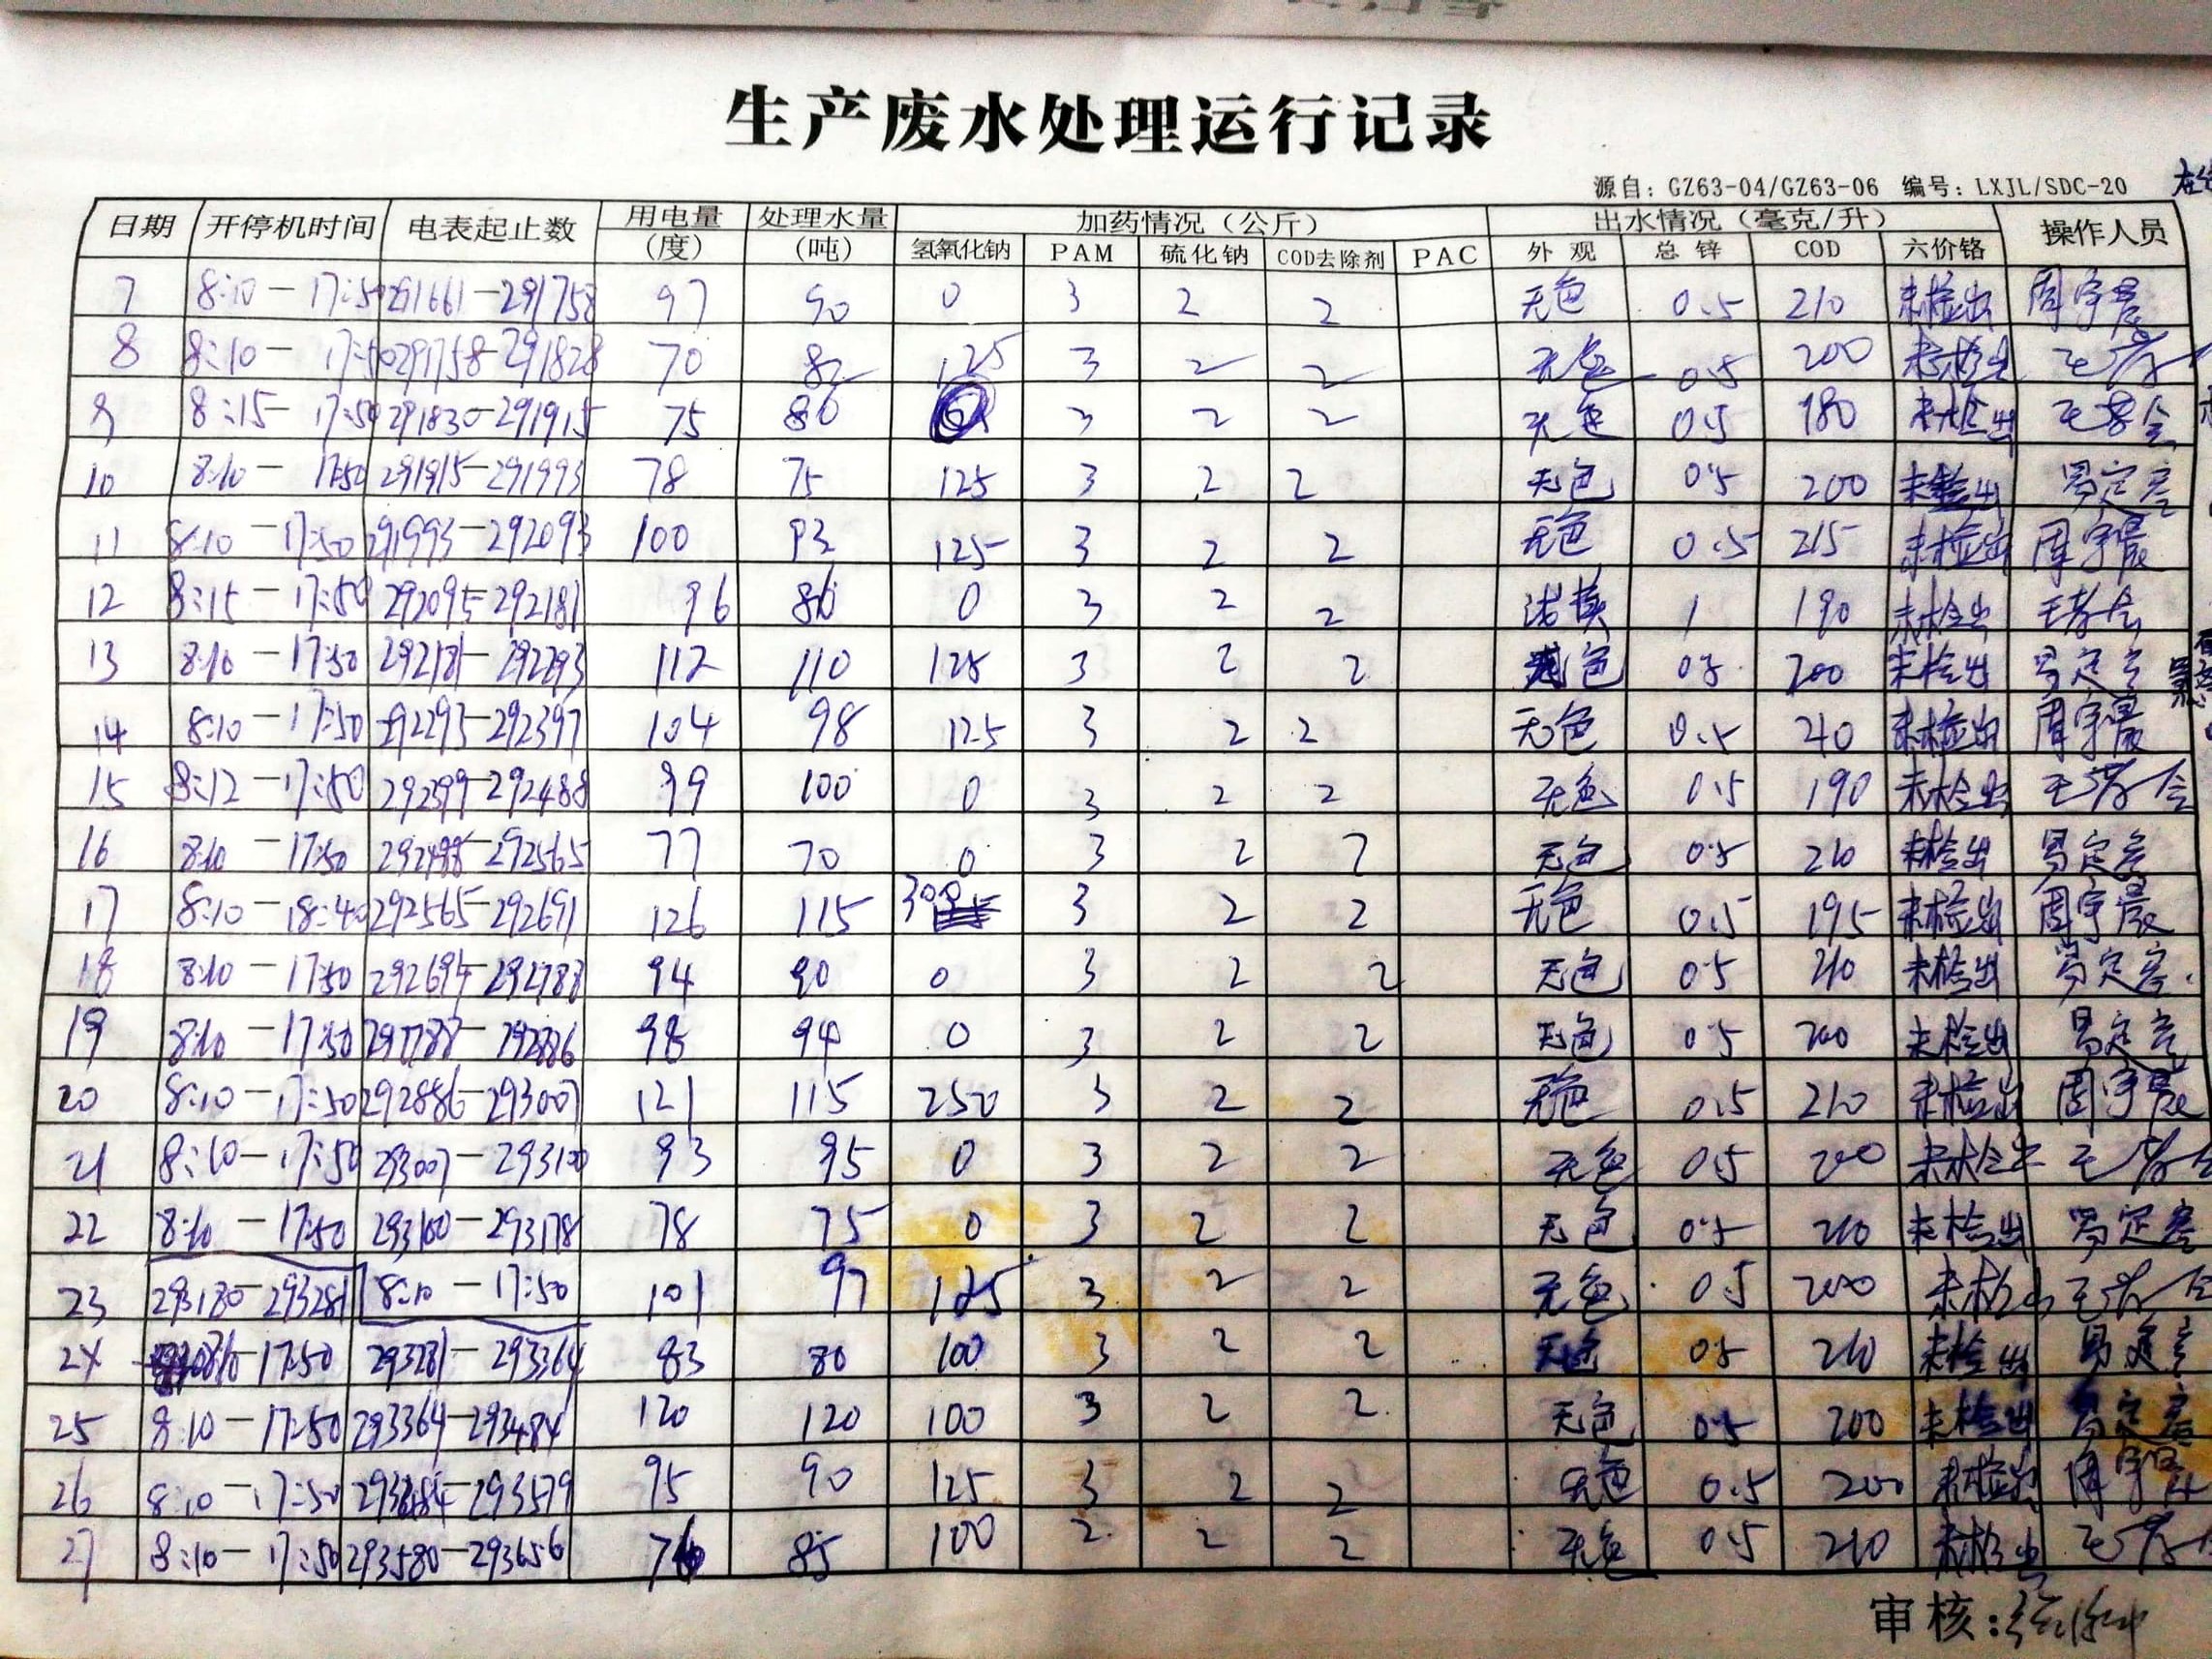 生产废水处理运行记录
源自：GZ63-04/GZ63-06 编号：LXJL/SDC-20
日期 开停机时间 电表起止数 用电量（度） 处理水量（吨） 加药情况（公斤） 出水情况（毫克/升） 操作人员
氢氧化钠 PAM 硫化钠 COD去除剂 PAC 外观 总锌 COD 六价铬
7 8:10-17:50 291661-291758 97 90 0 3 2 2 无色 0.5 210 未检出 周宇晨
8 8:10-17:50 291758-291828 70 82 125 3 2 2 无色 0.5 200 未检出
9 8:15-17:50 291830-291915 75 86 3 2 2 无色 0.5 180 未检出
10 8:10-17:50 291915-291993 78 75 125 3 2 2 无色 0.5 200 未检出
11 8:10-17:50 291993-292093 100 93 125 3 2 2 无色 0.5 215 未检出 周宇晨
12 8:15-17:50 292095-292181 96 86 0 3 2 2 1 190 未检出
13 8:10-17:50 292181-292293 112 110 125 3 2 2 无色 0.5 200 未检出
14 8:10-17:50 292293-292397 104 98 125 3 2 2 无色 0.5 210 未检出 周宇晨
15 8:12-17:50 292399-292488 99 100 0 3 2 2 无色 0.5 190 未检出
16 8:10-17:50 292488-292565 77 70 0 3 2 2 无色 0.5 210 未检出
17 8:10-18:40 292565-292691 126 115 300 3 2 2 无色 0.5 195 未检出 周宇晨
18 8:10-17:50 292694-292788 94 90 0 3 2 2 无色 0.5 210 未检出
19 8:10-17:50 292788-292886 98 94 0 3 2 2 无色 0.5 200 未检出
20 8:10-17:50 292886-293007 121 115 250 3 2 2 无色 0.5 210 未检出 周宇晨
21 8:10-17:50 293007-293100 93 95 0 3 2 2 无色 0.5 200 未检出
22 8:10-17:50 293100-293178 78 75 0 3 2 2 无色 0.5 210 未检出
23 293180-293281 8:10-17:50 101 97 125 3 2 2 无色 0.5 200 未检出
24 8:10-17:50 293281-293364 83 80 100 3 2 2 无色 0.5 210 未检出
25 8:10-17:50 293364-293484 120 120 100 3 2 2 无色 0.5 200 未检出
26 8:10-17:50 293484-293579 95 90 125 3 2 2 无色 0.5 200 未检出 周宇晨
27 8:10-17:50 293580-293656 76 85 100 2 2 2 无色 0.5 210 未检出
审核：